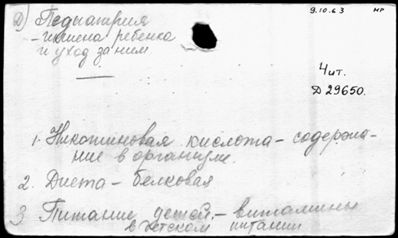 2) Педиатрия
9.10.63 НР
- гигиена ребенка
и уход за ним
Чит.
Д 29650.
1. Никотиновая кислота - содержа-
ние в организме.
2. Диета - белковая
3 Питание детей. - витамины
в детском питании